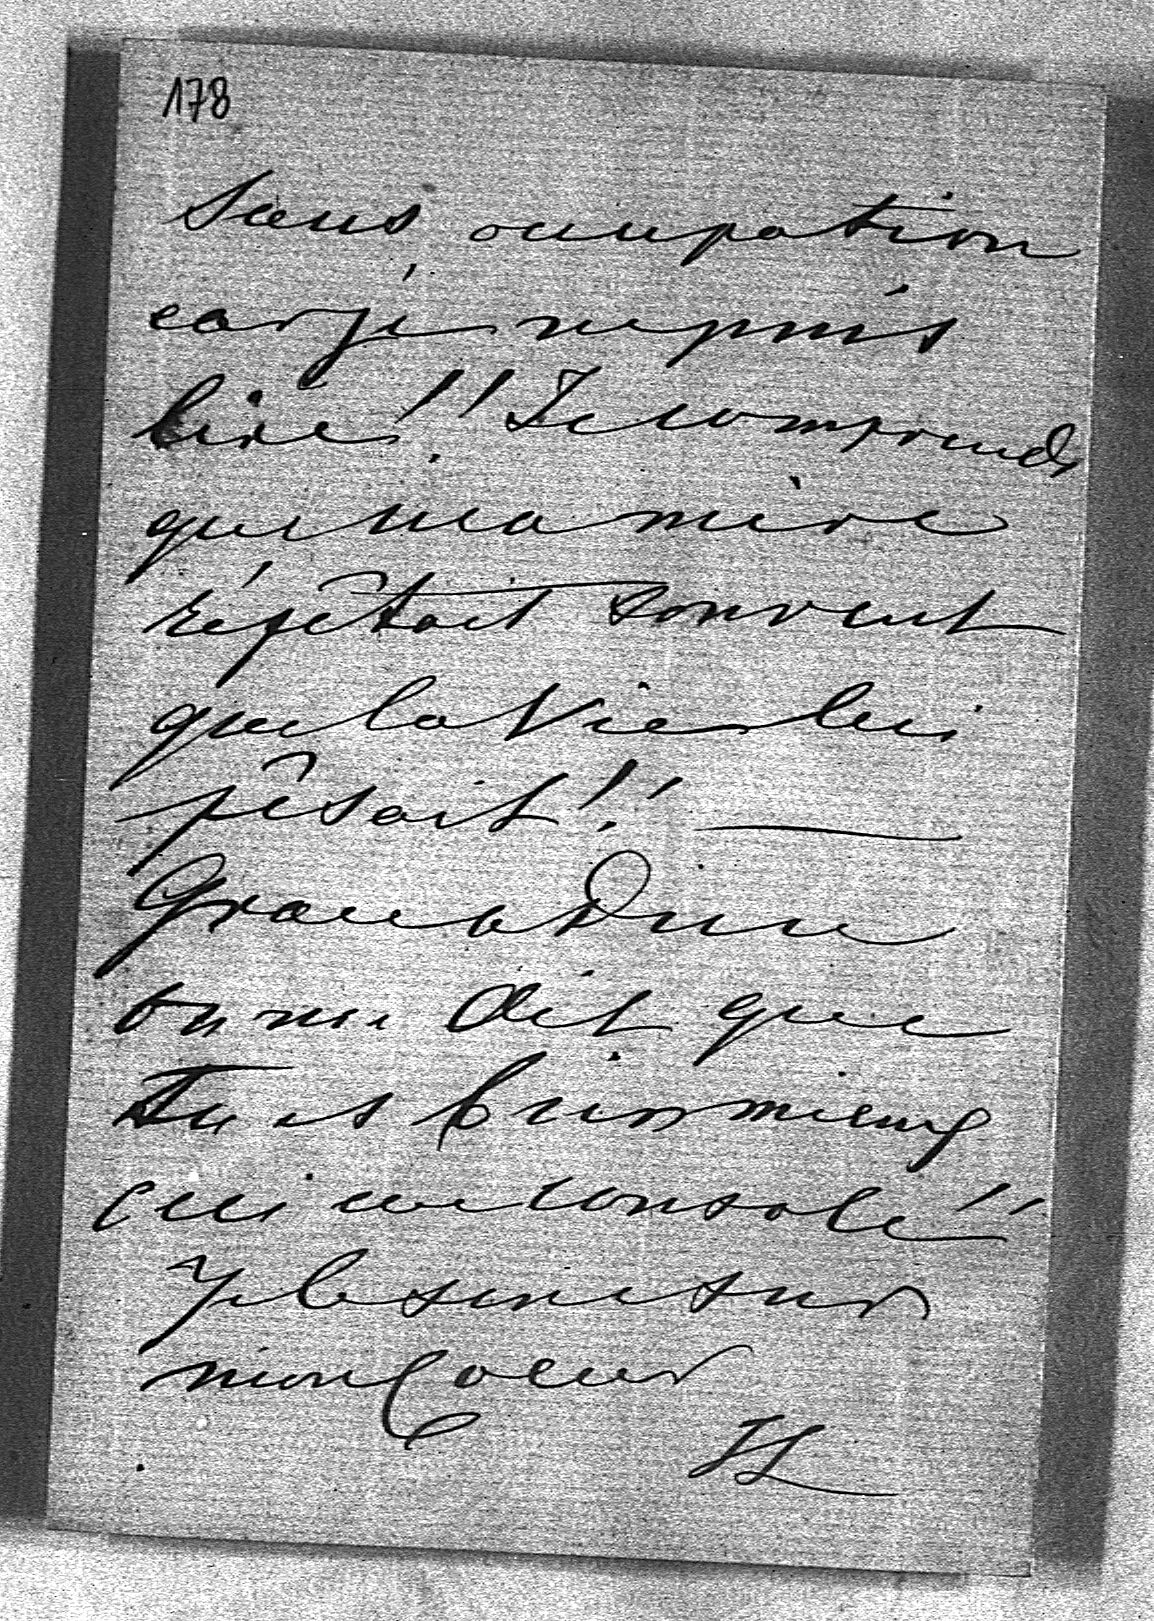 178
Sans occupation
car je ne puis
lire!! Je comprends
que ma mère
répêtait souvent
que la Vie lui
pêsait!! —
Grana Dine
on me dit que
tu es bien mieux
ceci me console!!
Je te serre sur
mon Coeur